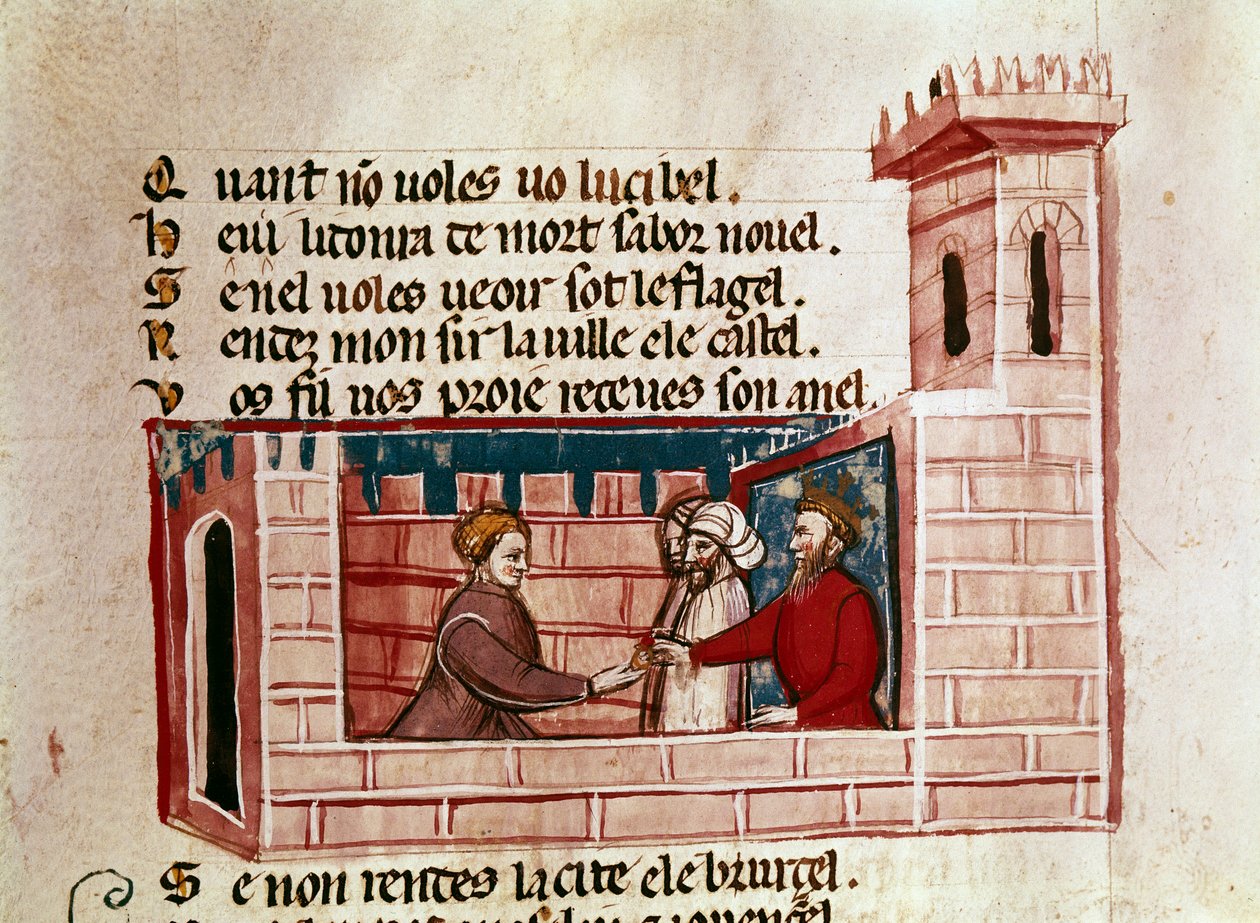 Q uant nõ uoles uo lucibel.
h eui litonra te mort sabor nouel.
S e nel uoles ueoir sot le flagel.
R entez mon sir la uille e le castel.
V os fil uos proie receues son anel.
S e non rentes la cite e le